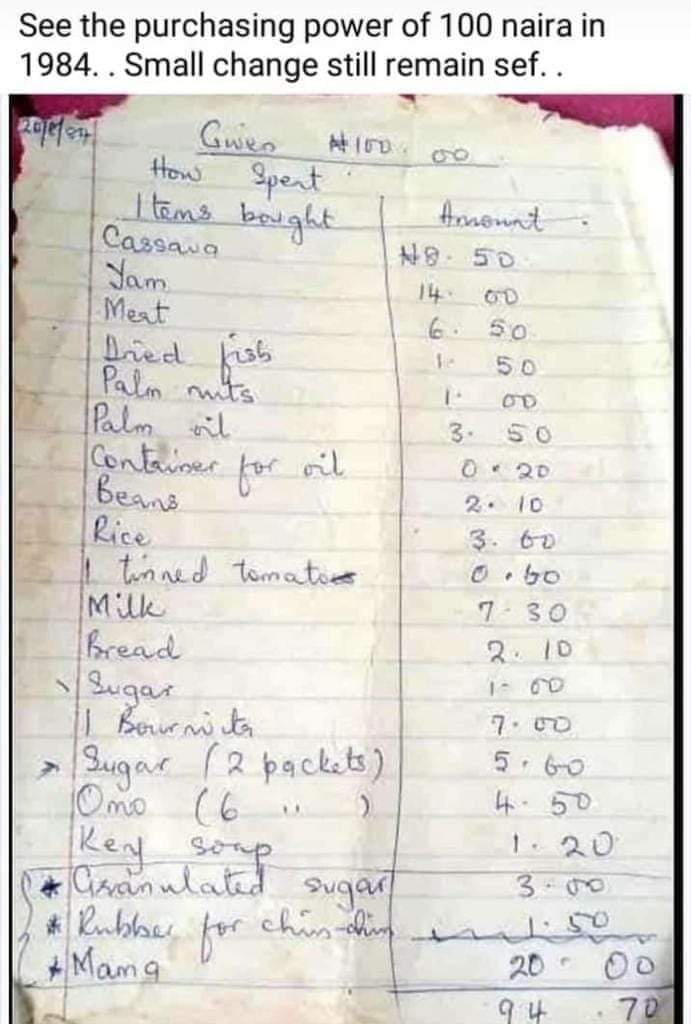 See the purchasing power of 100 naira in
1984. . Small change still remain sef. .
20/8/84
Given ₦100. 00
How Spent
Items bought Amount
Cassava ₦8. 50
Yam 14. 00
Meat 6. 50
Dried fish 1. 50
Palm nuts 1. 00
Palm oil 3. 50
Container for oil 0. 20
Beans 2. 10
Rice 3. 60
1 tinned tomatoes 0. 60
Milk 7. 30
Bread 2. 10
Sugar 1. 00
1 Bournvita 7. 00
Sugar (2 packets) 5. 60
Omo (6 ,, ) 4. 50
Key soap 1. 20
* Granulated sugar 3. 00
* Rubber for chin-chin 1. 50
* Mama 20. 00
94. 70